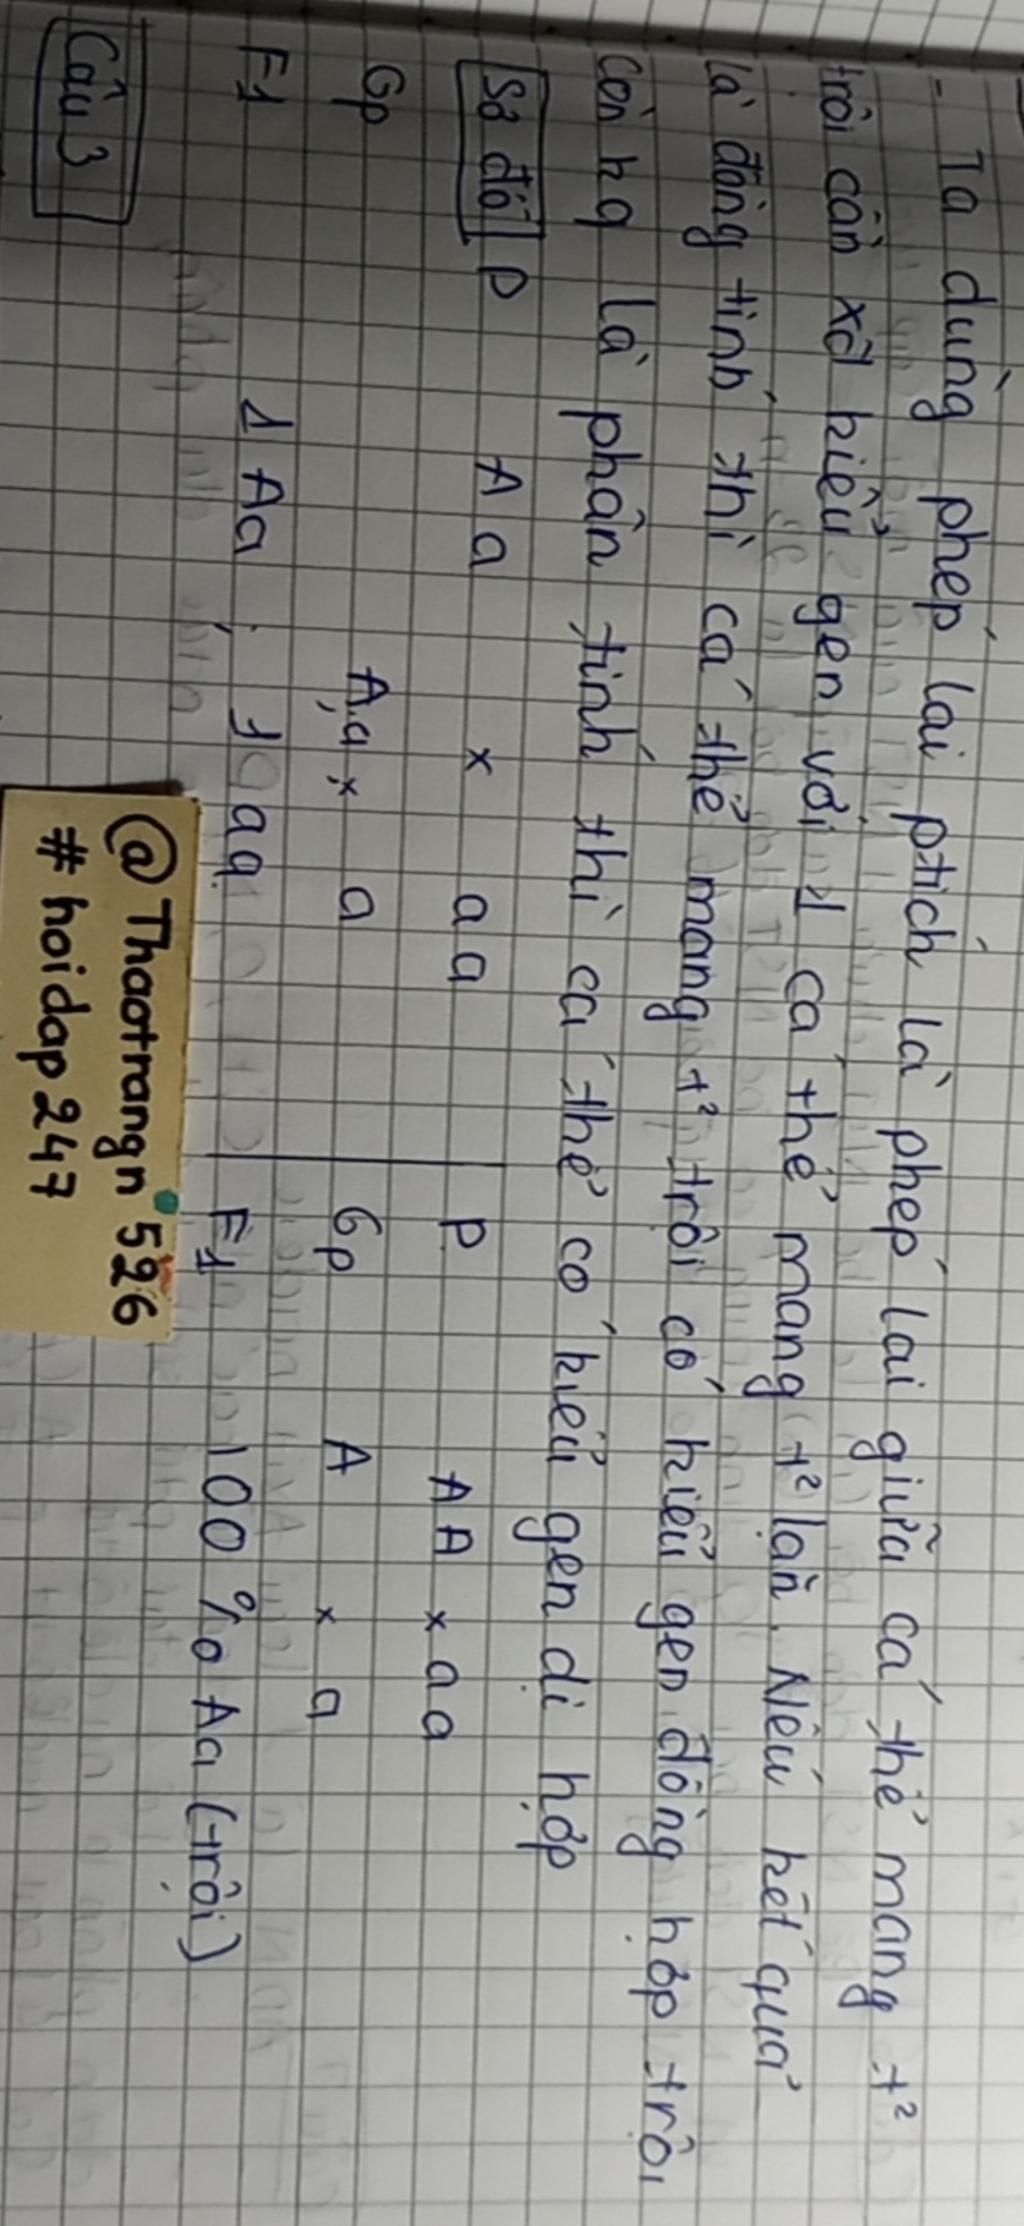 - Ta dùng phép lai ptích là phép lai giữa cá thể mang t²
trội cần xđ kiểu gen với 1 cá thể mang t² lặn. Nếu kết quả
là đồng tính thì cá thể mang t² trội có kiểu gen đồng hợp trội
còn kq là phân tính thì cá thể có kiểu gen dị hợp
Sơ đồ P Aa x aa P AA x aa
Gp A,a x a Gp A x a
F1 1 Aa ; 1 aa F1 100 % Aa (trội)
Câu 3
@ Thaotrangn 526
# hoidap 247